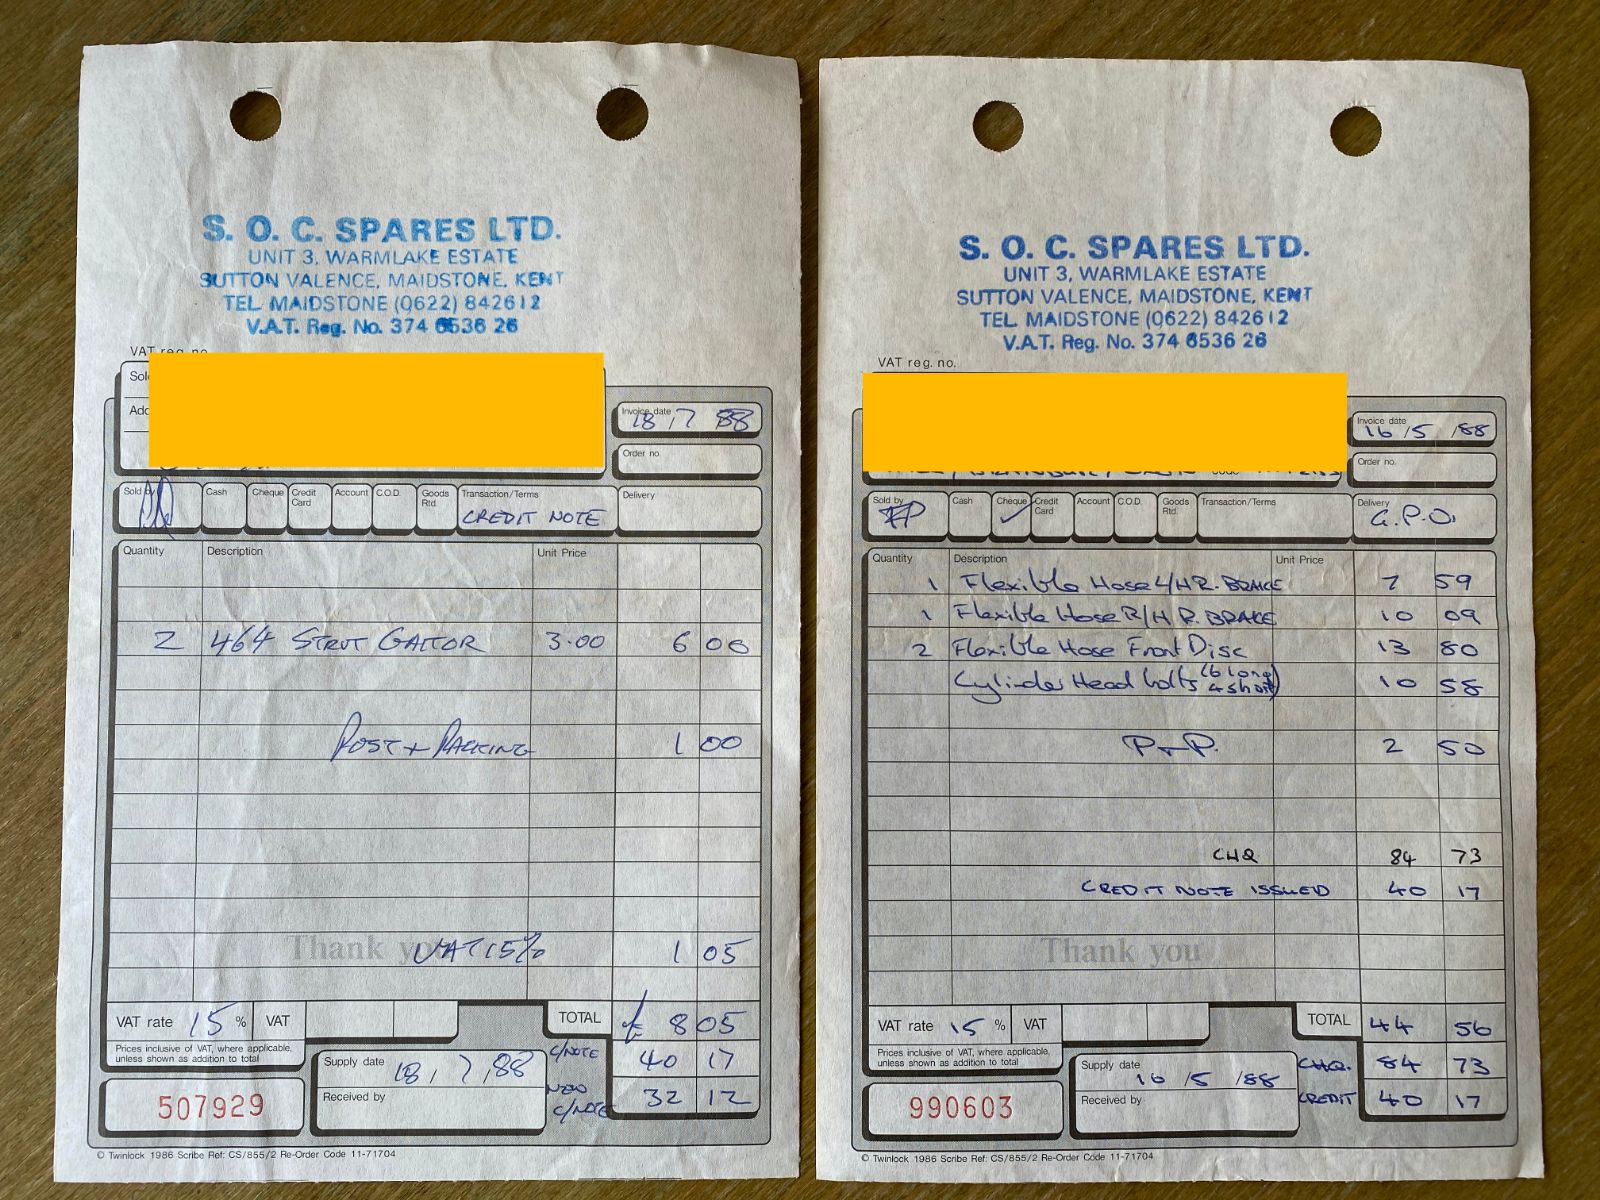 S. O. C. SPARES LTD.
UNIT 3, WARMLAKE ESTATE
SUTTON VALENCE, MAIDSTONE, KENT
TEL MAIDSTONE (0622) 842612
V.A.T. Reg. No. 374 6536 26
VAT reg. no.
Invoice date 18 , 7 88
Order no.
Sold by Cash Cheque Credit Card Account C.O.D. Goods Rtd. Transaction/Terms CREDIT NOTE Delivery
Quantity Description Unit Price
2 464 STRUT GAITOR 3.00 6 00
POST + PACKING 1 00
Thank you VAT 15% 1 05
VAT rate 15 % VAT TOTAL £ 8 05
Prices inclusive of VAT, where applicable,
unless shown as addition to total
C/NOTE 40 17
Supply date 18, 7, 88
NEW C/NOTE 32 12
Received by
507929
© Twinlock 1986 Scribe Ref: CS/855/2 Re-Order Code 11-71704
S. O. C. SPARES LTD.
UNIT 3, WARMLAKE ESTATE
SUTTON VALENCE, MAIDSTONE, KENT
TEL MAIDSTONE (0622) 842612
V.A.T. Reg. No. 374 6536 26
VAT reg. no.
Invoice date 16 /5 /88
Order no.
Sold by Cash Cheque ✓ Credit Card Account C.O.D. Goods Rtd. Transaction/Terms Delivery G.P.O.
Quantity Description Unit Price
1 Flexible Hose L/H R. BRAKE 7 59
1 Flexible Hose R/H R. BRAKE 10 09
2 Flexible Hose Front Disc 13 80
Cylinder Head bolts (6 long 4 short) 10 58
P + P. 2 50
CHQ 84 73
CREDIT NOTE ISSUED 40 17
Thank you
VAT rate 15 % VAT TOTAL 44 56
Prices inclusive of VAT, where applicable,
unless shown as addition to total
CHQ. 84 73
Supply date 16 /5 /88
CREDIT 40 17
Received by
990603
© Twinlock 1986 Scribe Ref: CS/855/2 Re-Order Code 11-71704